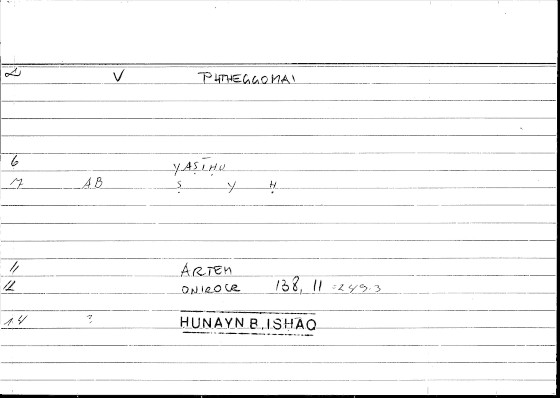 2 V PHTHEGGOMAI
6 YAṢĪḤU
7 AB Ṣ Y Ḥ
11 ARTEM
12 ONIROCR 138, 11 = 249.3
14 ? HUNAYN B. ISHĀQ